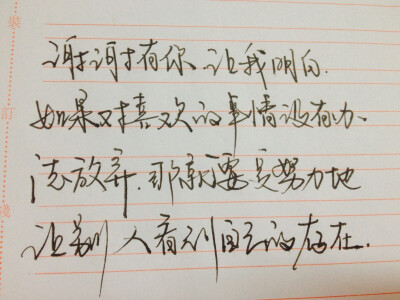 谢谢有你让我明白.
如果对喜欢的事情没有办、
法放弃.那就要更努力地
让别人看到自己的存在.
装
订
线